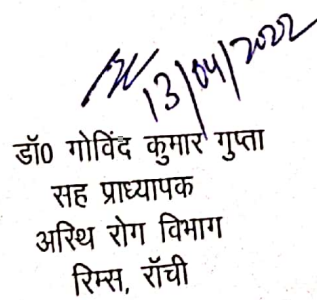 13/04/2022
डॉ0 गोविंद कुमार गुप्ता
सह प्राध्यापक
अस्थि रोग विभाग
रिम्स, राँची